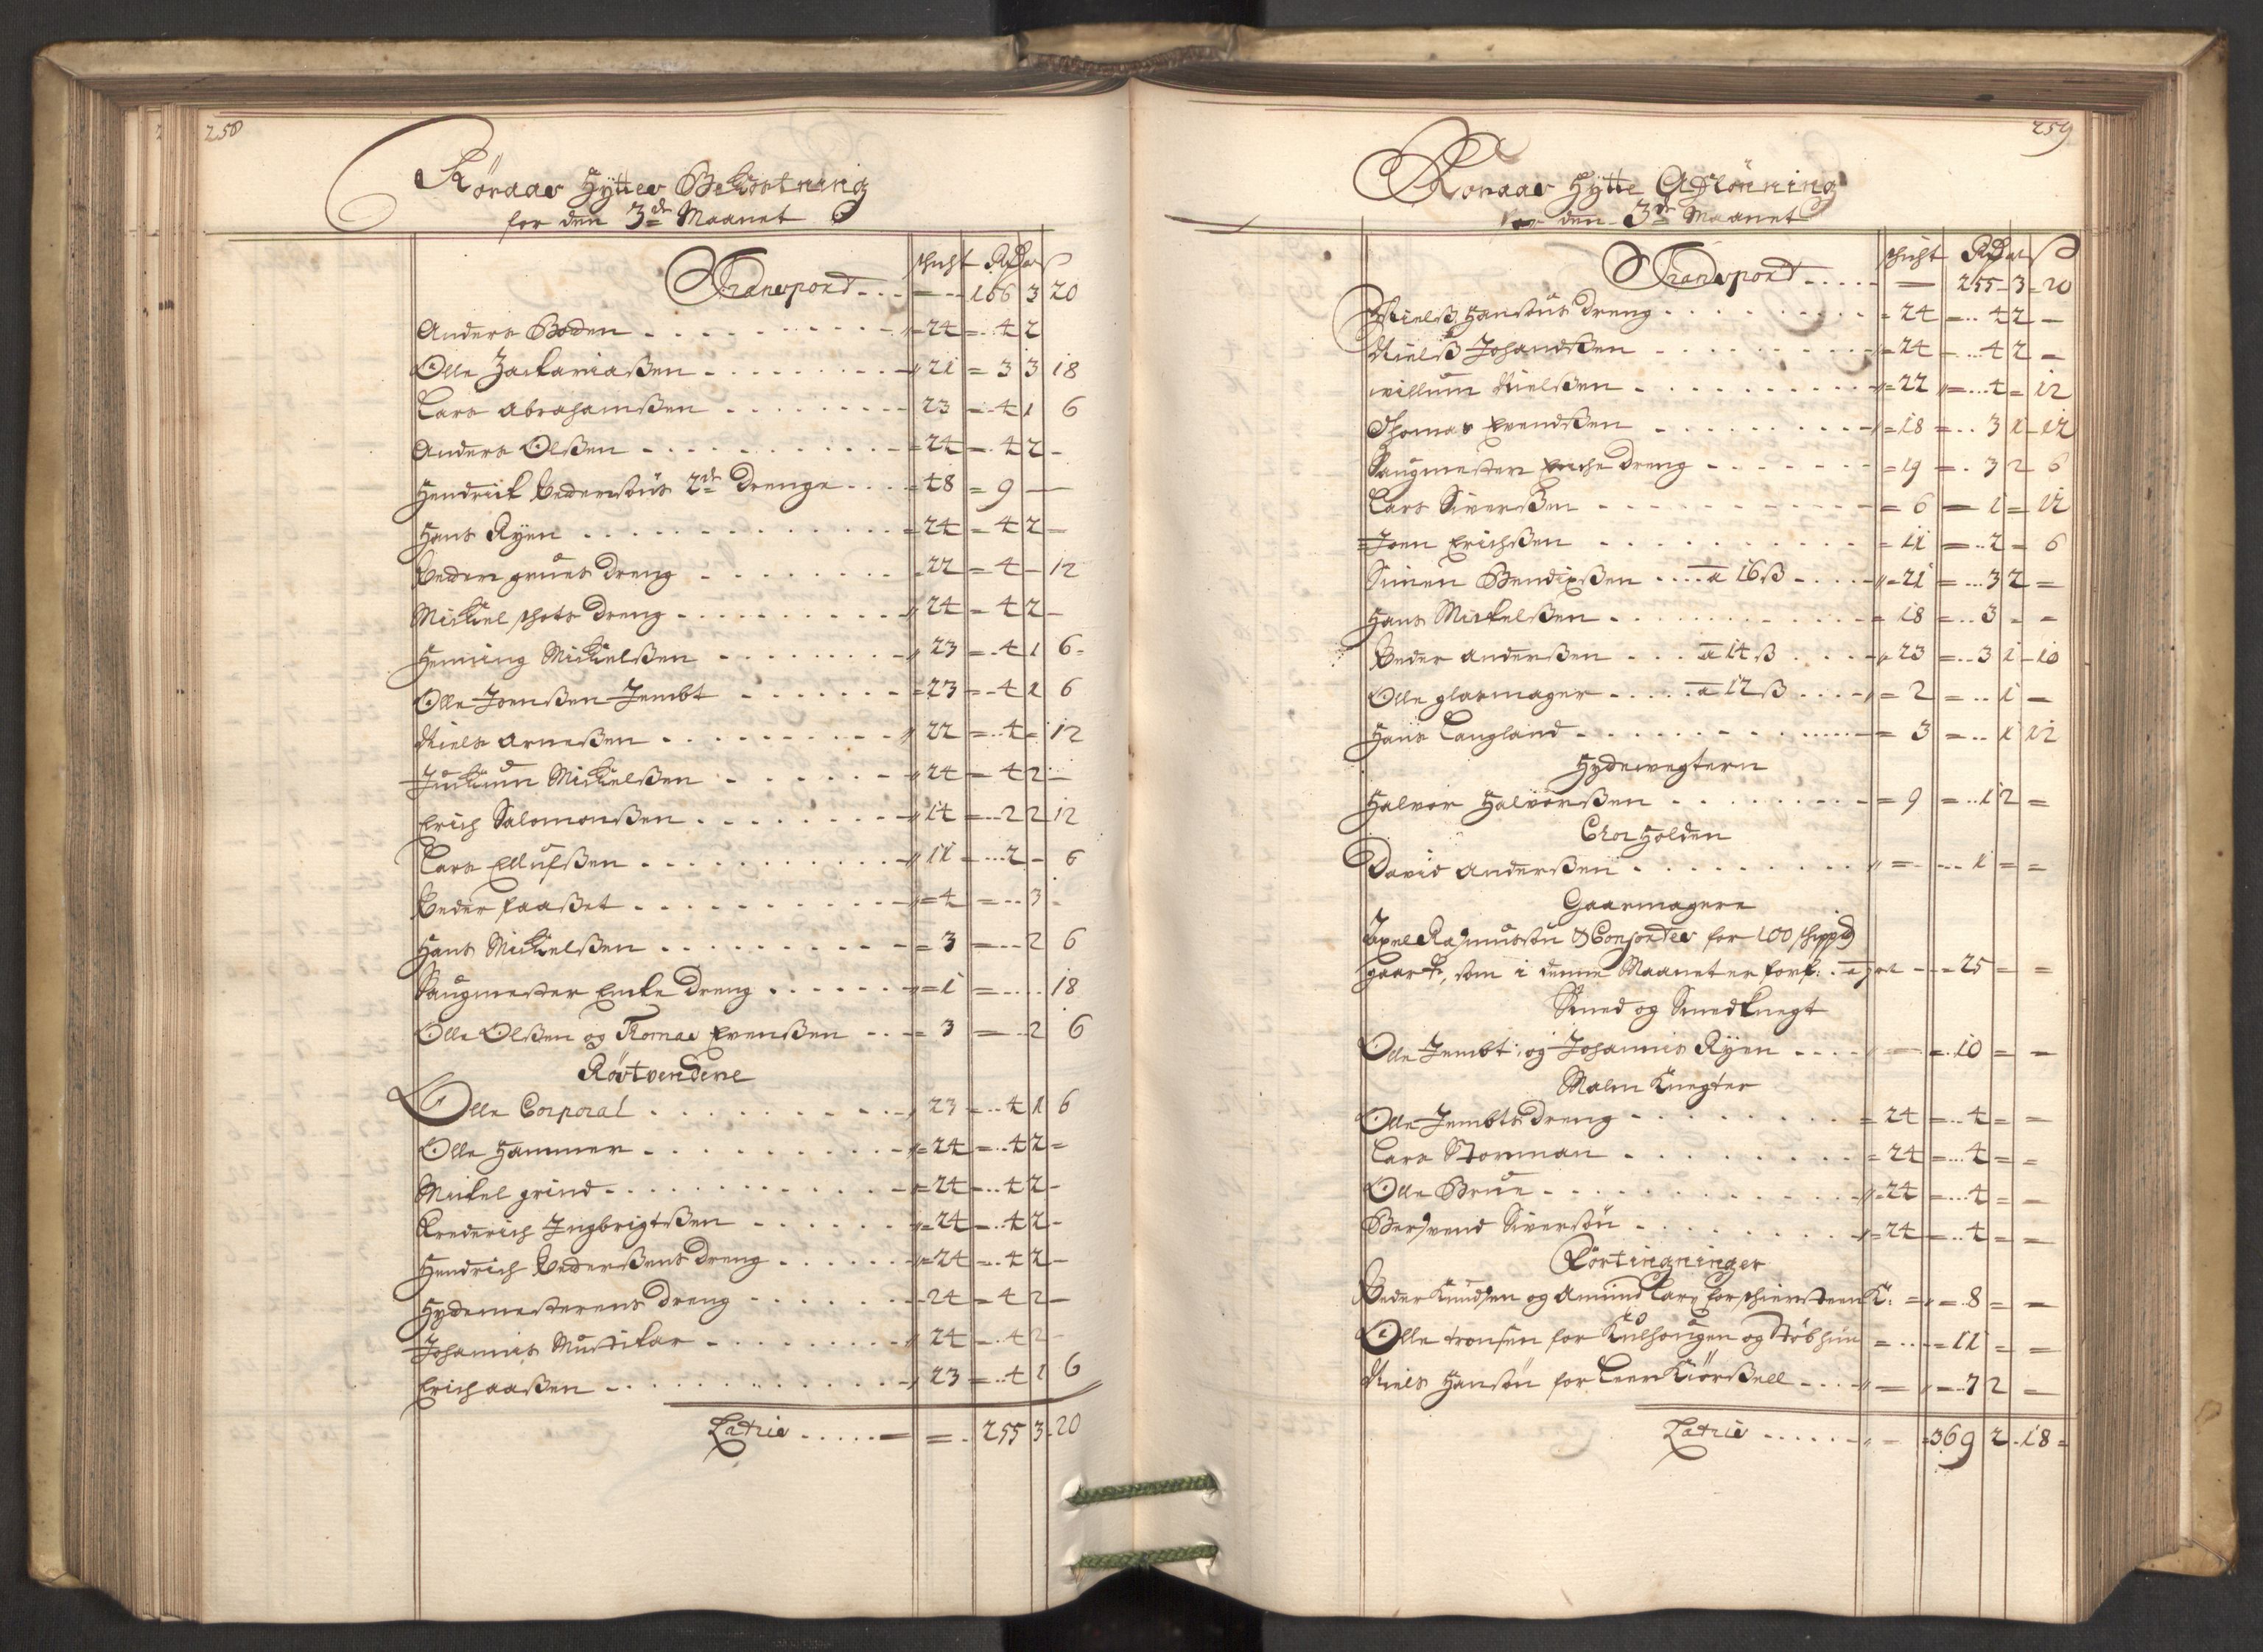 258
Röraas Hÿttes Bekostning
for den 3de Maanet
schicht Rdr ort ß
Transport - - - 166 3 20
Anders Boden - 24 - 4 2
Olle Zackariaßen - 21 - 3 3 18
Lars Abrahamßen - 23 - 4 1 6
Anders Olßen - 24 - 4 2 -
Hendrick Pedersøns 2de Drenge - 48 - 9 -
Hans Rÿen - 24 - 4 2 -
Peder grues Dreng - 22 - 4 - 12
Mickel schots Dreng - 24 - 4 2 -
Henning Mickelßen - 23 - 4 1 6
Olle Joenßen Jembt - 23 - 4 1 6
Niels Arneßen - 22 - 4 - 12
Jückum Mickelßen - 24 - 4 2 -
Erich Salomonßen - 14 - 2 2 12
Lars Ellufßen - 11 - 2 - 6
Peder faaßet - 4 - 3 -
Hans Mickelßen - 3 - 2 6
Saugmester Encke Dreng - 1 - 18
Olle Olßen og Tomas Evenßen - 3 - 2 6
Röstvendere
Olle Corporal - 23 - 4 1 6
Olle Hammer - 24 - 4 2 -
Mickel grind - 24 - 4 2 -
Frederich Ingbrigtßen - 24 - 4 2 -
Hendrich Pederßens Dreng - 24 - 4 2 -
Hydemesterens Dreng - 24 - 4 2 -
Johannis Musikar - 24 - 4 2 -
Erich aaßen - 23 - 4 1 6
Latris - - 255 3 20
259
Röraas Hÿtte Aflönning
for den 3de Maanet
schicht Rdr ort ß
Transport - - 255 - 3 - 20
Nielß Hansøns Dreng - 24 - 4 2 -
Nielß Johandßen - 24 - 4 2 -
willum Nielßen - 22 - 4 - 12
Thomas Evendßen - 18 - 3 1 - 12
Saugmester Enche Dreng - 19 - 3 2 6
Lars Siverßen - 6 - 1 - 12
Joen Erichßen - 11 - 2 - 6
Simen Bendixßen - a 16 ß - 21 - 3 2 -
Hans Mickelßen - 18 - 3 - -
Peder Anderßen - a 14 ß - 23 - 3 1 - 10
Olle glasmager - a 12 ß - 2 - 1 -
Hans Langland - 3 - 1 12
Hydewegtern
Halvor Halvorßen - 9 - 1 2 -
Chor Holden
David Anderßen - - 1 - -
Gaarmagere
Axel Rasmusøn & Consortes for 100 schippd
gaark:, som i denne Maanet er fork: a 1 ort - 25 - -
Smed og Smedknegt
Olle Jembt og Johannis Rÿen - - 10 - -
Malm Knegter
Olle Jembts Dreng - 24 - 4 - -
Lars Storman - 24 - 4 - -
Olle Brue - 24 - 4 - -
Bersvend Siversøn - 24 - 4 - -
Fortingninger
Peder Knudsen og Amund Lars: for schiersteen K: - 8 - -
Olle tronsen for Kulhougen og Støbhuu - 11 - -
Niels Hansøn for Leer Kiörßell - - 7 2 -
Latris - - 369 2 - 18 -